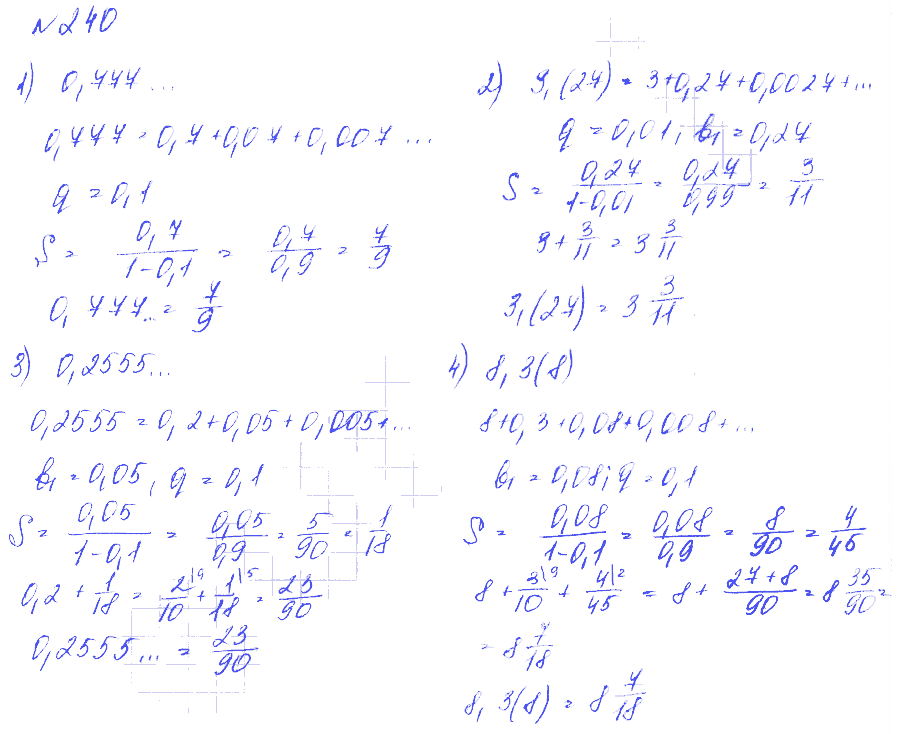 №240
1) 0,777...
0,777 = 0,7+0,07+0,007 ...
q = 0,1
S = 0,7/(1-0,1) = 0,7/0,9 = 7/9
0,777... = 7/9
2) 3,(27) = 3+0,27+0,0027+...
q = 0,01; b₁ = 0,27
S = 0,27/(1-0,01) = 0,27/0,99 = 3/11
3 + 3/11 = 3 3/11
3,(27) = 3 3/11
3) 0,2555...
0,2555 = 0,2+0,05+0,005+...
b₁ = 0,05, q = 0,1
S = 0,05/(1-0,1) = 0,05/0,9 = 5/90 = 1/18
0,2 + 1/18 = 2\9/10 + 1\5/18 = 23/90
0,2555... = 23/90
4) 8,3(8)
8+0,3+0,08+0,008+...
b₁ = 0,08; q = 0,1
S = 0,08/(1-0,1) = 0,08/0,9 = 8/90 = 4/45
8 + 3\9/10 + 4\2/45 = 8 + (27+8)/90 = 8 35/90 =
= 8 7/18
8,3(8) = 8 7/18